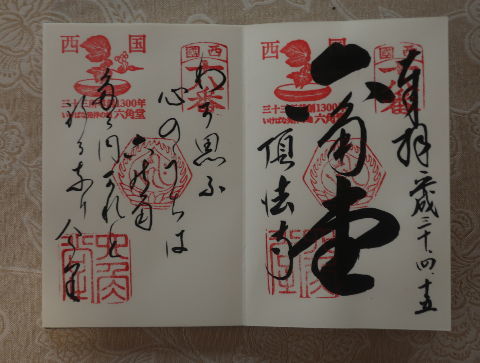 奉拝 平成三十・四・十五
西國
十八番
六角堂
頂法寺
西国
三十三所草創1300年
いけばな発祥の地 六角堂
西國
十八番
わが思ふ
心のうちは
六の角
西国
三十三所草創1300年
いけばな発祥の地 六角堂